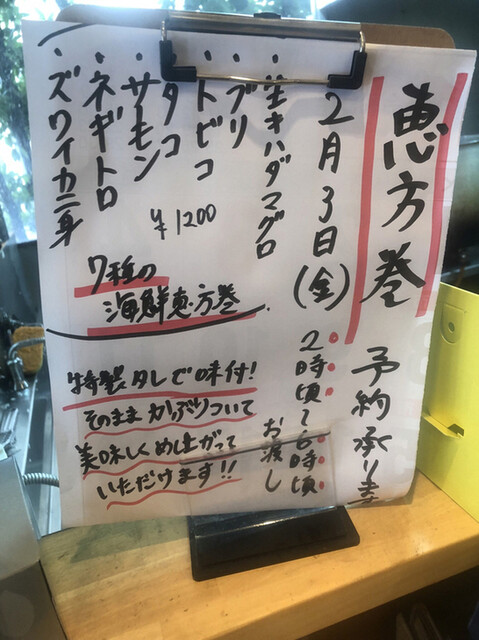 恵方巻 予約承ります
2月3日(金)
2時頃〜6時頃
お渡し
・生キハダマグロ
・ブリ
・トビコ
・タコ
・サーモン
・ネギトロ
・ズワイカニ身
¥1200
7種の
海鮮恵方巻
特製タレで味付!
そのままかぶりついて
美味しくめし上がって
いただけます!!